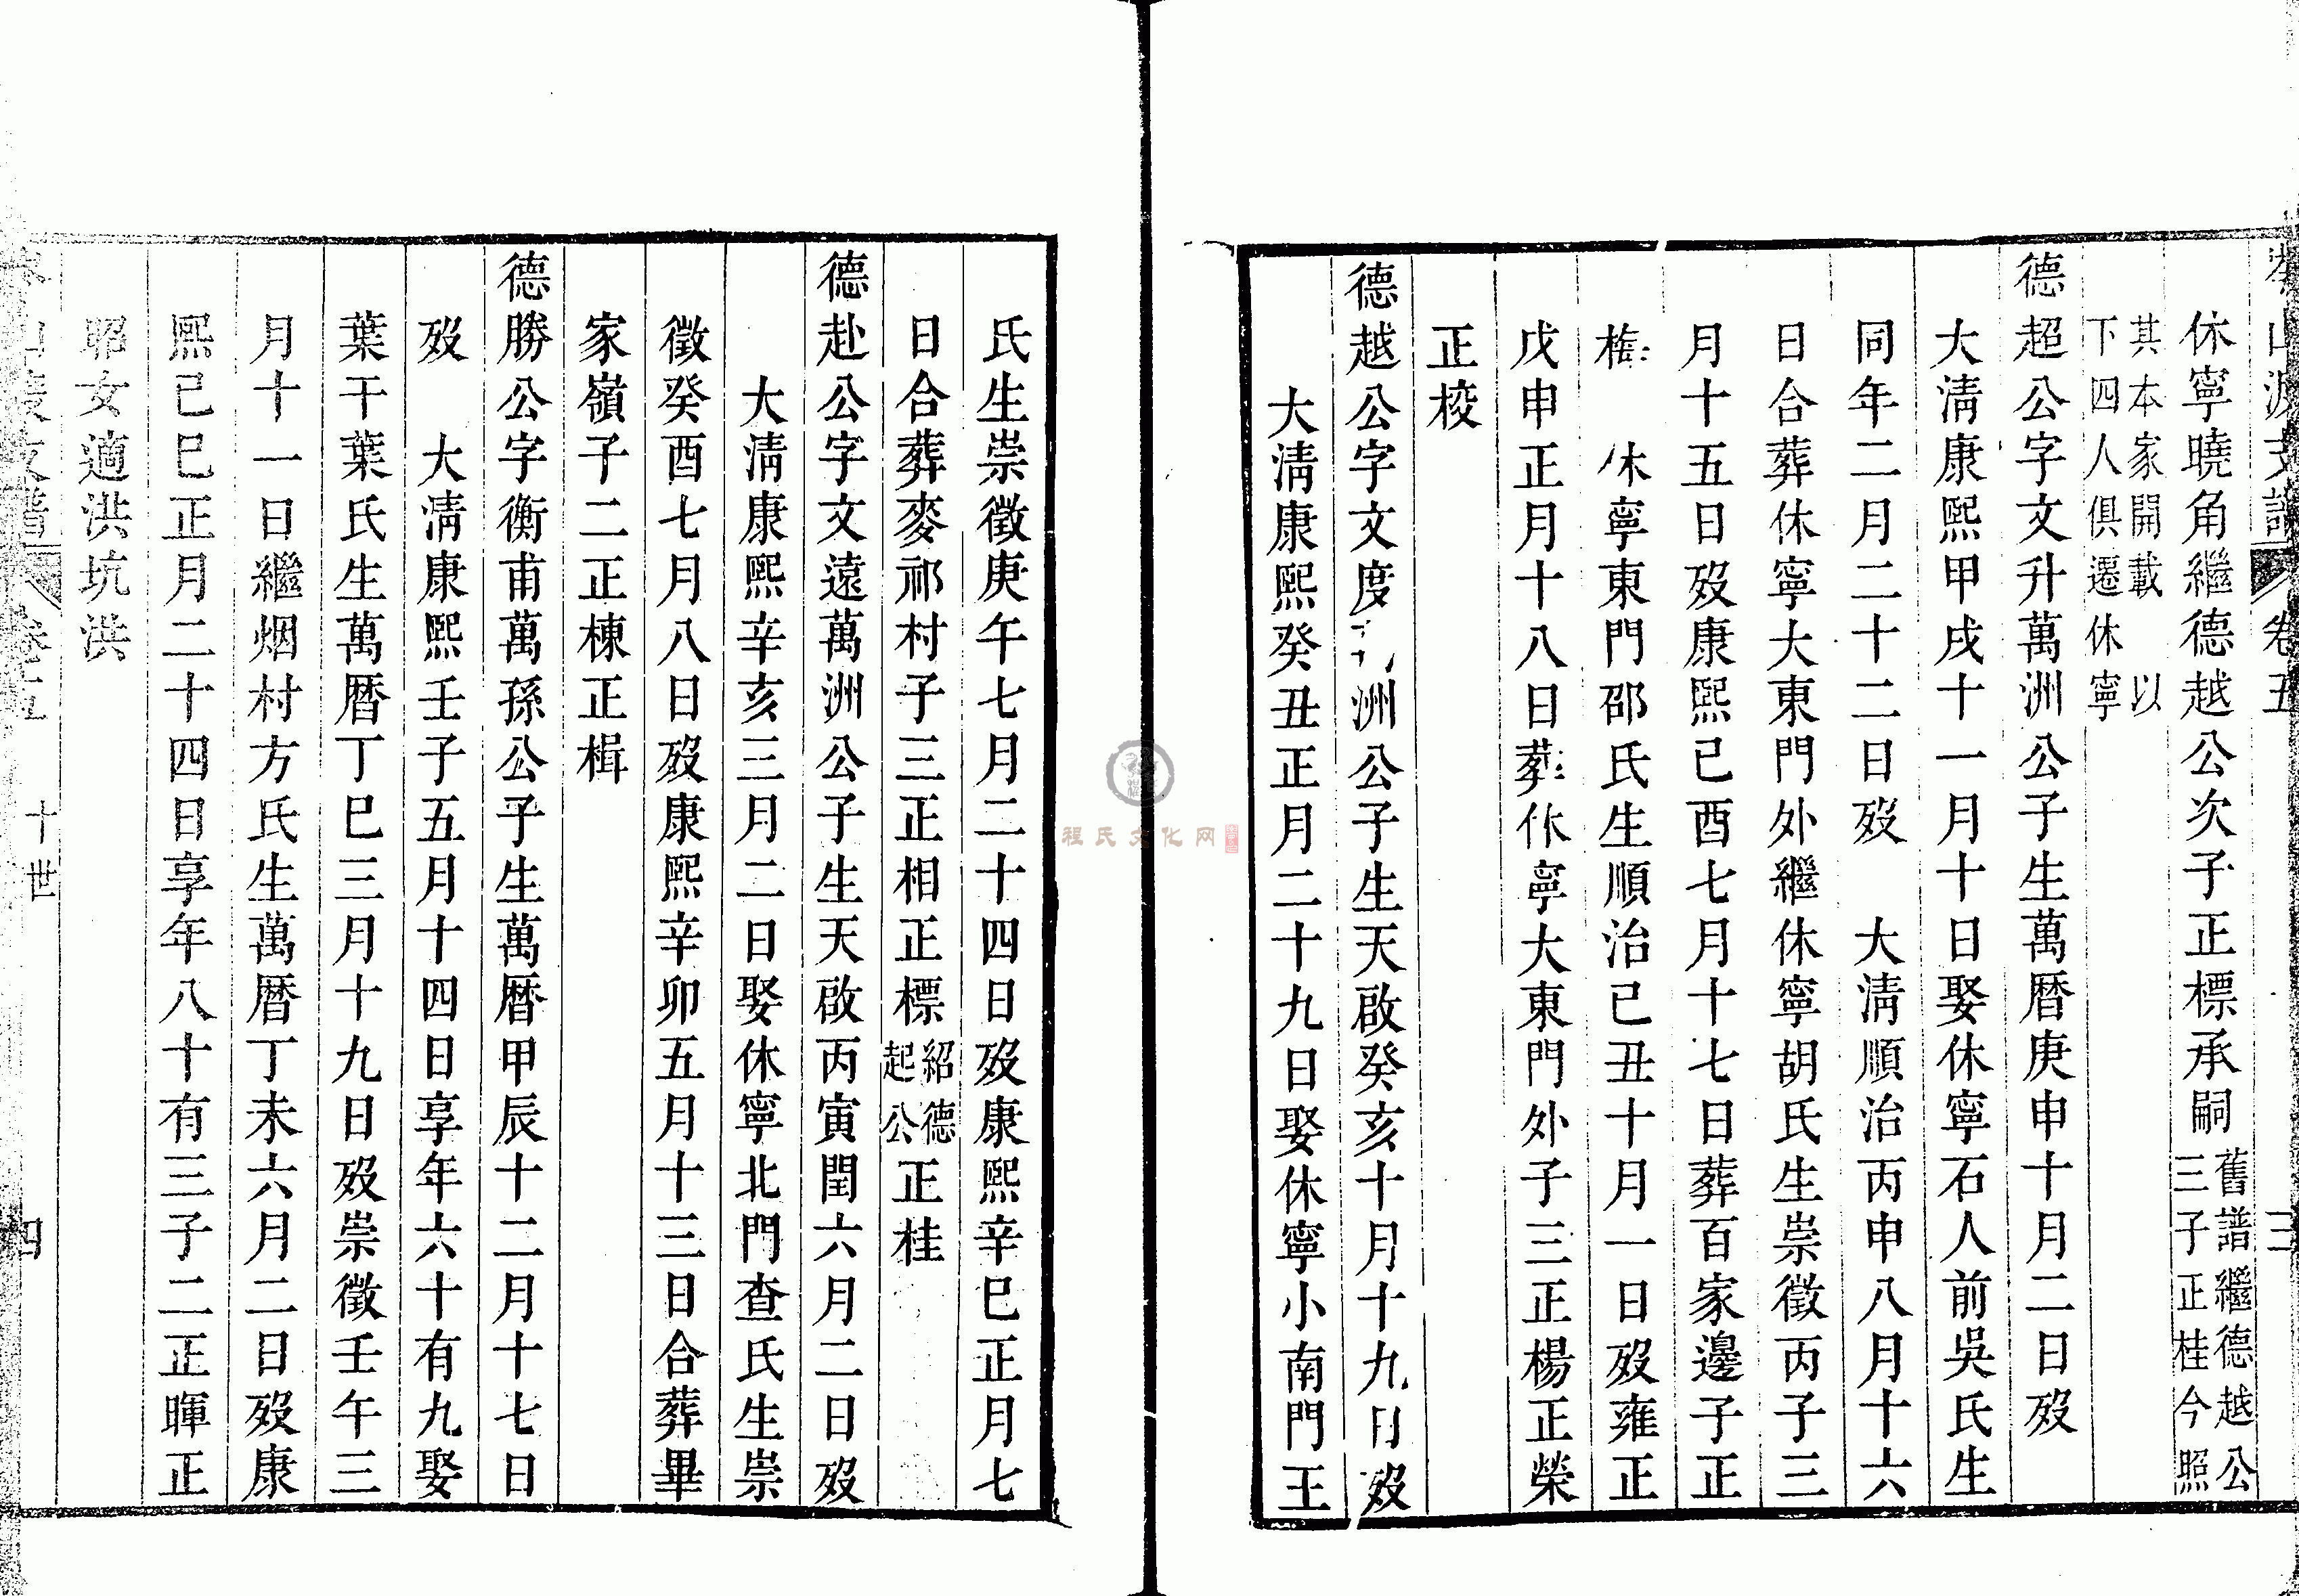 山源支譜 卷五 三
休寧曉角繼德越公次子正標承嗣舊譜繼德越公
三子正桂今照
其本家開載 以
下四人俱遷休寧
德超公字文升萬洲公子生萬曆庚申十月二日歿
大淸康熙甲戌十一月十日娶休寧石人前吳氏生
同年二月二十二日歿 大淸順治丙申八月十六
日合葬休寧大東門外繼休寧胡氏生崇徵丙子三
月十五日歿康熙己酉七月十七日葬百家邊子正
梅 休寧東門邵氏生順治己丑十月一日歿雍正
戊申正月十八日葬休寧大東門外子三正楊正榮
正棱
德越公字文度 洲公子生天啟癸亥十月十九日歿
大淸康熙癸丑正月二十九日娶休寧小南門王
氏生崇徵庚午七月二十四日歿康熙辛巳正月七
日合葬麥祁村子三正相正標紹德
起公正桂
德赴公字文遠萬洲公子生天啟丙寅閏六月二日歿
大淸康熙辛亥三月二日娶休寧北門查氏生崇
徵癸酉七月八日歿康熙辛卯五月十三日合葬畢
家嶺子二正棟正楫
德勝公字衡甫萬孫公子生萬曆甲辰十二月十七日
歿 大淸康熙壬子五月十四日享年六十有九娶
葉干葉氏生萬曆丁巳三月十九日歿崇徵壬午三
月十一日繼烟村方氏生萬曆丁未六月二日歿康
熙己巳正月二十四日享年八十有三子二正暉正
昭女適洪坑洪
支譜 卷五 十世 四
程氏文化网